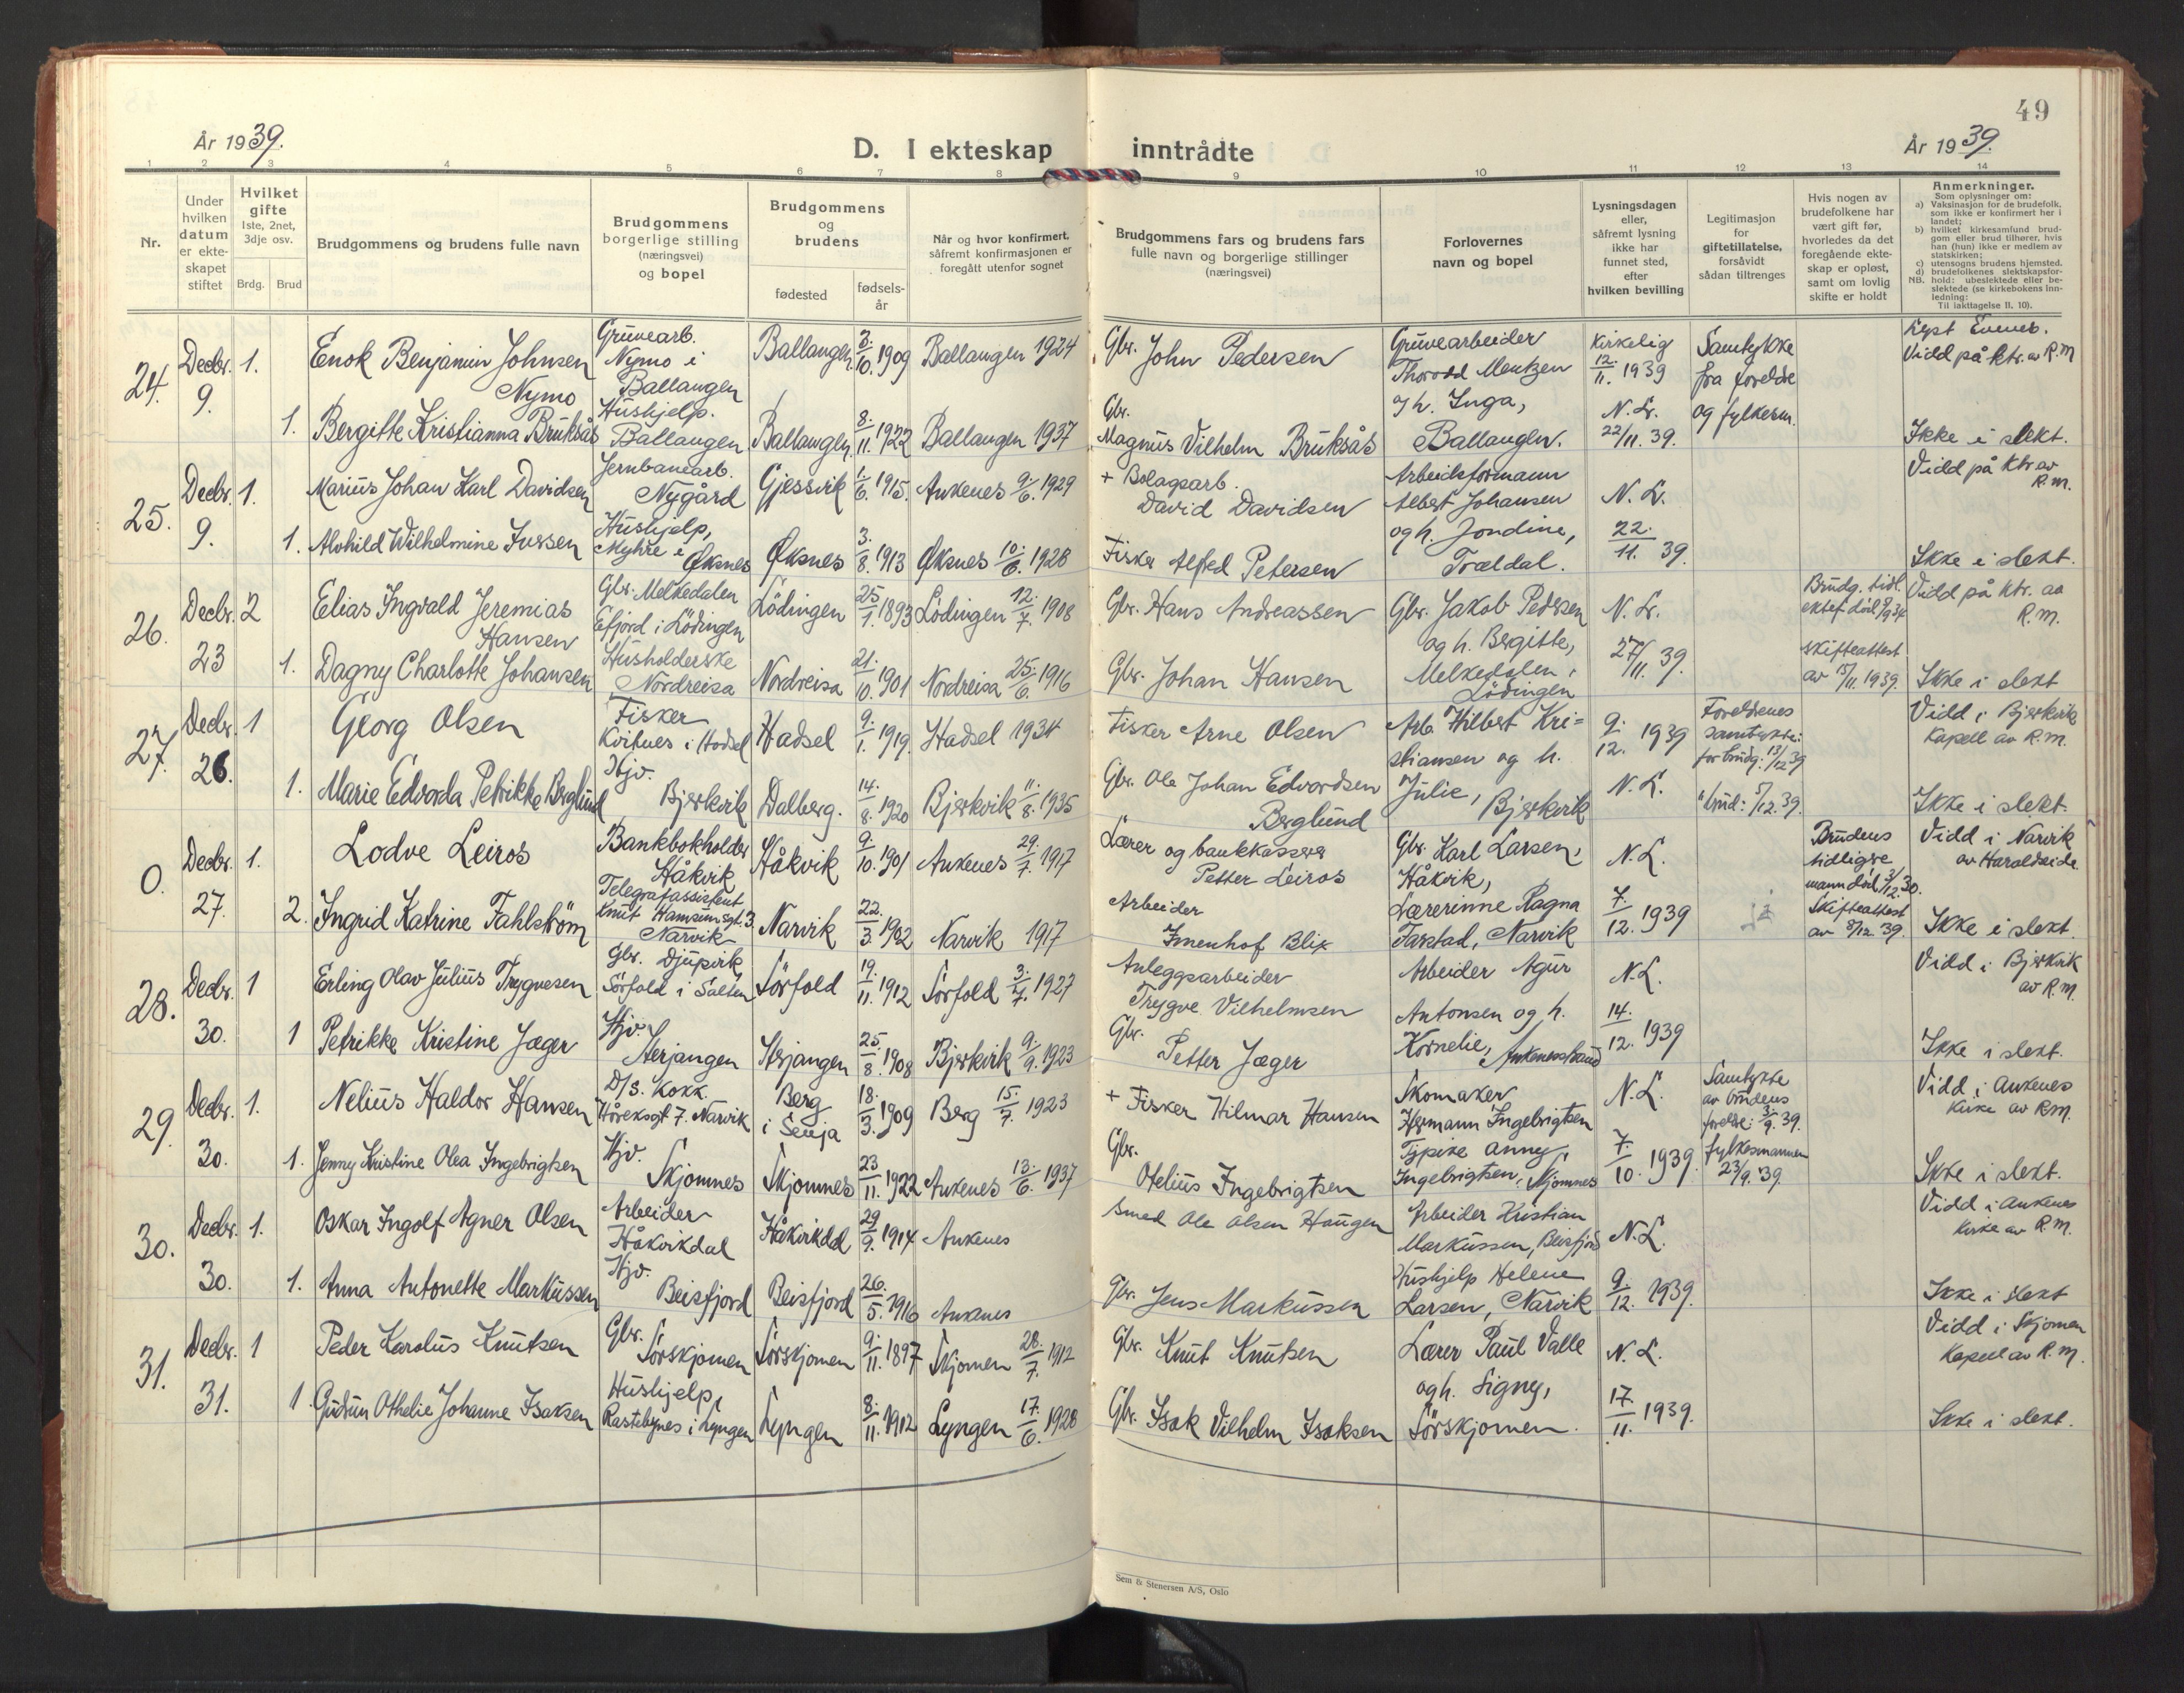 49
År 1939.
D. I ekteskap inntrådte
År 1939.
1 2 3 4 5 6 7 8 9 10 11 12 13 14
Nr.
Under hvilken datum er ekteskapet stiftet
Hvilket gifte
1ste, 2net, 3dje osv.
Brdg. Brud
Brudgommens og brudens fulle navn
Brudgommens borgerlige stilling (næringsvei) og bopel
Brudgommens og brudens
fødested
fødselsår
Når og hvor konfirmert, såfremt konfirmasjonen er foregått utenfor sognet
Brudgommens fars og brudens fars fulle navn og borgerlige stillinger (næringsvei)
Forlovernes navn og bopel
Lysningsdagen eller, såfremt lysning ikke har funnet sted, efter hvilken bevilling
Legitimasjon for giftetillatelse, forsåvidt sådan tiltrenges
Hvis nogen av brudefolkene har vært gift før, hvorledes da det foregående ekteskap er opløst, samt om lovlig skifte er holdt
Anmerkninger.
Som oplysninger om:
a) Vaksinasjon for de brudefolk, som ikke er konfirmert her i landet;
b) hvilket kirkesamfund brudgom eller brud tilhører, hvis han (hun) ikke er medlem av statskirken;
c) utensogns brudens hjemsted.
d) brudefolkenes slektskapsforhold: ubeslektede eller beslektede (se kirkebokens innledning:
NB.
Til iakttagelse II. 10).
24. Decbr. 9. 1. Enok Benjamin Johnsen Nymo Gruvearb. Nymo i Ballangen Ballangen 3/10. 1909 Ballangen 1924 Gbr. John Pedersen Gruvearbeider Thorodd Mentzen Kirkelig 12/11. 1939 Samtykke fra foreldre Lyst Evenes. Vidd på ktr. av R.M
1. Bergitte Kristianna Bruksås Hushjelp. Ballangen Ballangen 8/11. 1922 Ballangen 1937 Gbr. Magnus Vilhelm Bruksås og h. Inga, Ballangen. N.L. 22/11. 39. og fylkesm. Ikke i slekt.
25. Decbr. 9. 1. Marius Johan Karl Davidsen Jernbanearb. Nygård Gjessvik 1/6. 1915. Ankenes 9/6. 1929 + Bolagsarb. David Davidsen Arbeidsformann Albert Johansen N.L. Vidd på ktr av R.M.
1. Alvhild Wilhelmine Jussen Hushjelp, Myhre i Øksnes Øksnes 3/8. 1913 Øksnes 10/6. 1928 Fisker Alfred Petersen og h. Jondine, Trældal. 22/11. 39. Ikke i slekt.
26. Decbr. 23 2 Elias Ingvald Jeremias Hansen Gbr. Melkedalen Efjord i Lödingen Lödingen 25/1. 1893 Lödingen 12/7. 1908 Gbr. Hans Andreassen Gbr. Jakob Pedersen N.L. Brudg. tidl. ektef. död 9/9 34 Vidd på ktr. av R.M.
1. Dagny Charlotte Johansen Husholderske Nordreisa Nordreisa 21/10. 1901 Nordreisa 25/6. 1916 Gbr. Johan Hansen og h. Bergitte, Melkedalen i Lödingen 27/11. 39. skifteattest av 15/11. 1939. Ikke i slekt
27. Decbr. 26. 1 Georg Olsen Fisker Kvitnes i Hadsel Hadsel 9/1. 1919. Hadsel 1934 Fisker Arne Olsen Arb. Hilbert Kri= 9/12. 1939 Foreldrenes samtykke: for brudg: 13/12 39 Vidd i Bjerkvik Kapell av R.M.
1. Marie Edvarda Petrikke Berglund Hjv. Bjerkvik Dalberg. 14/8. 1920 Bjerkvik 11/8. 1935 Gbr. Ole Johan Edvardsen Berglund stiansen og h. Julie, Bjerkvik N.L. " brud: 5/12. 39. Ikke i slekt.
0. Decbr. 27. 1. Lodve Leiros Bankbokholder Håkvik Håkvik 9/10. 1901 Ankenes 29/7. 1917 Lærer og bankkasserer Petter Leiros Gbr. Karl Larsen, Håkvik, N.L. Brudens tidligere mann död 3/12. 30. Vidd i Narvik av Haraldseide
2. Ingrid Katrine Fahlström Telegrafassistent Knut Hamsunsgt. 3. Narvik Narvik 22/3. 1902 Narvik 1917 Arbeider Imenhof Blix Lærerinne Ragna Farstad, Narvik 7/12. 1939 Skifteattest av 8/12. 39. Ikke i slekt.
28. Decbr. 30. 1 Erling Olav Julius Trygvesen Gbr. Djupvik Sörfold i Salten Sörfold 19/11. 1912 Sörfold 3/7. 1927 Anleggsarbeider Trygve Vilhelmsen Arbeider Agur N.L. Vidd i Bjerkvik av R.M.
1 Petrikke Kristine Jæger Hjv. Herjangen Herjangen 25/8. 1908 Bjerkvik 9/9. 1923 Gbr. Petter Jæger Antonsen og h. Kornelie, Ankenesstrand 14/12. 1939 Ikke i slekt.
29. Decbr. 30. 1. Nelius Haldor Hansen D/S. Kokk Höreksgt 7. Narvik Berg i Senja 18/3. 1909 Berg 15/7. 1923 + Fisker Hilmar Hansen Skomaker Hermann Ingebrigtsen N.L. Samtykke av brudens foreldre: 3/9. 39. Vidd i Ankenes Kirke av R.M.
1. Jenny Kristine Olea Ingebrigtsen Hjv. Skjomnes Skjomnes 23/11. 1922 Ankenes 13/6. 1937 Gbr. Otelius Ingebrigtsen Typike Anny Ingebrigtsen, Skjomnes 7/10. 1939. fylkesmannen 23/9. 39. Ikke i slekt.
30. Decbr. 30. 1. Oskar Ingolf Agner Olsen Arbeider Håkvikdal Håkvikdal 29/9. 1914 Ankenes Smed Ole Olsen Haugen Arbeider Kristian Markussen, Beisfjord N.L. Vidd i Ankenes Kirke av R.M.
1. Anna Antonette Markussen Hjv. Beisfjord Beisfjord 26/5. 1916 Ankenes Gbr. Jens Markussen Hushjelp Helene Larsen, Narvik 9/12. 1939. Ikke i slekt
31. Decbr. 31. 1 Peder Karolus Knutsen Gbr. Sörskjomen Sörskjomen 9/11. 1897 Skjomen 28/7. 1912 Gbr. Knut Knutsen Lærer Paul Valle N.L. Vidd i Skjomen Kapell av R.M.
1 Gudrun Othelie Johanne Isaksen Hushjelp, Rastebynes i Lyngen Lyngen 8/11. 1912 Lyngen 17/6. 1928 Gbr. Isak Vilhelm Isaksen og h. Signy, Sörskjomen. 17/11. 1939. Ikke i slekt.
Sem & Stenersen A/S, Oslo